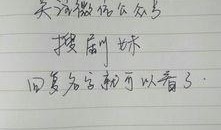 关注微信公众号
搜剧妹
回复名字就可以看了.